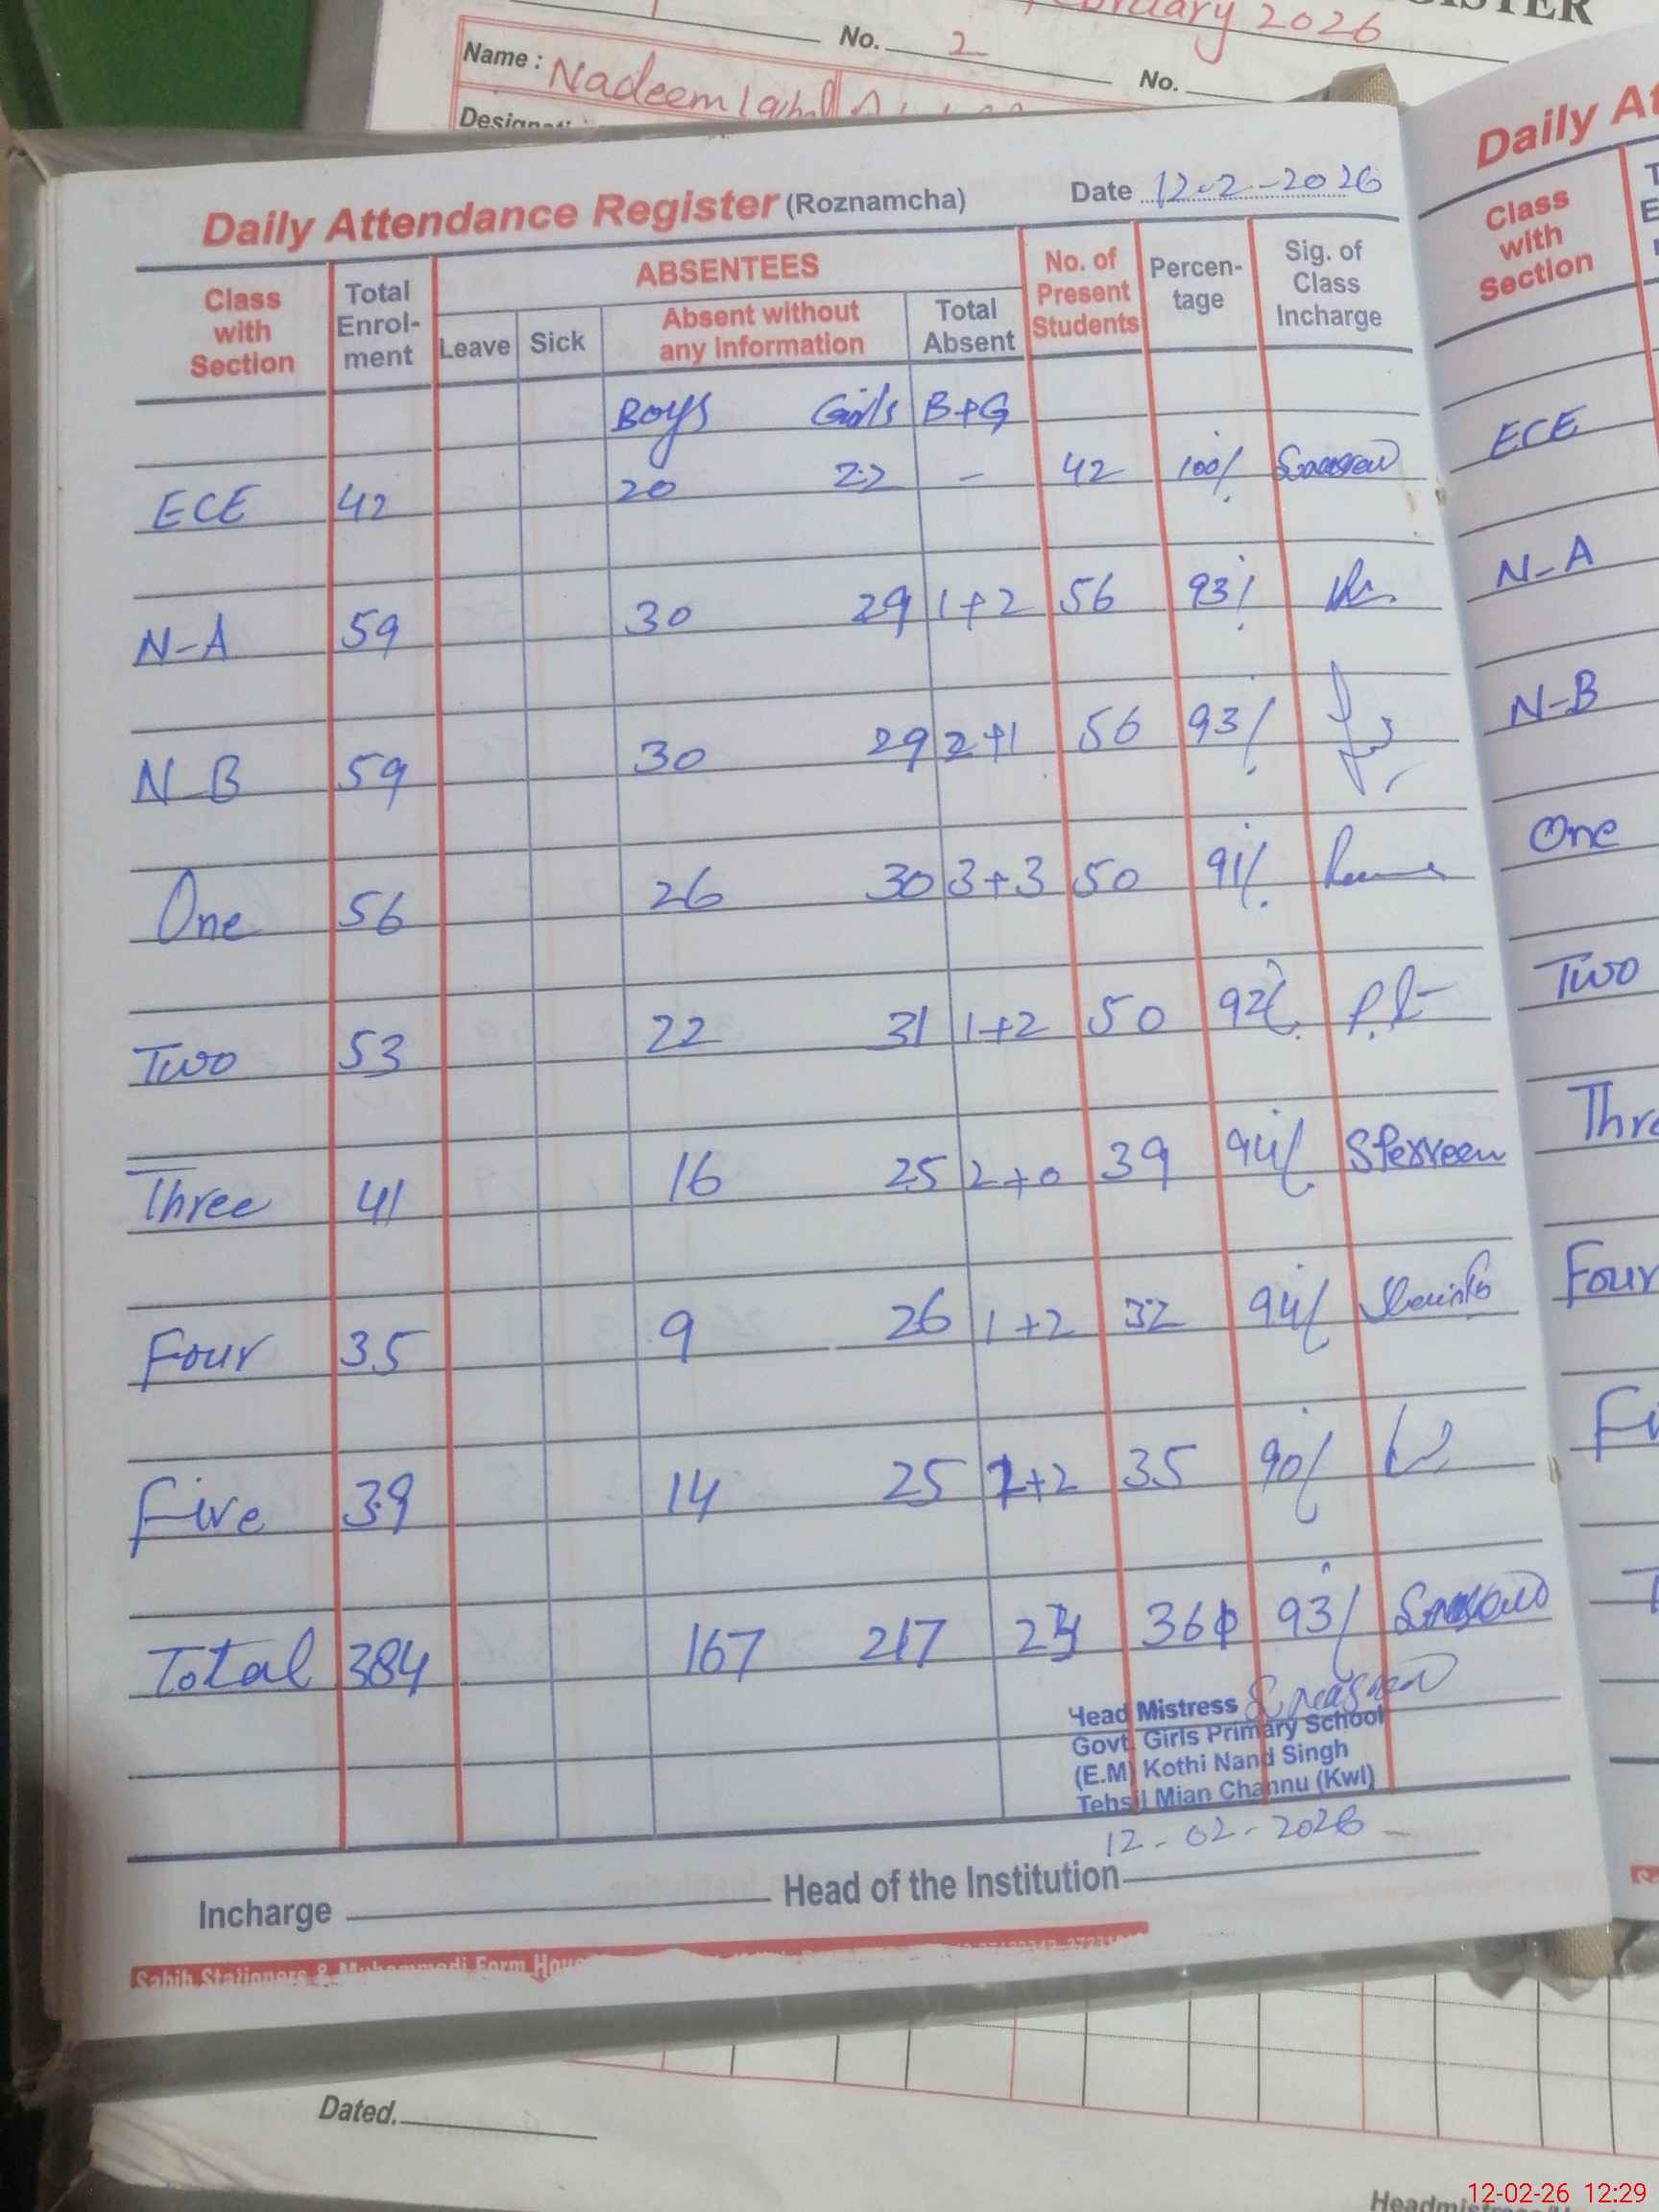 February 2026
No. 2
No.
Name : Nadeem Iqbal
Daily Attendance Register (Roznamcha) Date 12-2-2026
Class with Section
Total Enrol-ment
ABSENTEES
Leave Sick Absent without any Information Total Absent
No. of Present Students
Percen-tage
Sig. of Class Incharge
Boys Girls B+G
ECE 42 20 22 - 42 100%
N-A 59 30 29 1+2 56 93%
N-B 59 30 29 2+1 56 93%
One 56 26 30 3+3 50 91%
Two 53 22 31 1+2 50 92%
Three 41 16 25 2+0 39 94% SPerveen
Four 35 9 26 1+2 32 94%
Five 39 14 25 2+2 35 90%
Total 384 167 217 24 360 93%
Head Mistress
Govt. Girls Primary School
(E.M) Kothi Nand Singh
Tehsil Mian Channu (Kwl)
12-02-2026
Incharge Head of the Institution
Sahib Stationers & Muhammadi Form House
Daily At
Class with Section
ECE
N-A
N-B
One
Two
Thre
Four
Fi
Dated.
12-02-26 12:29